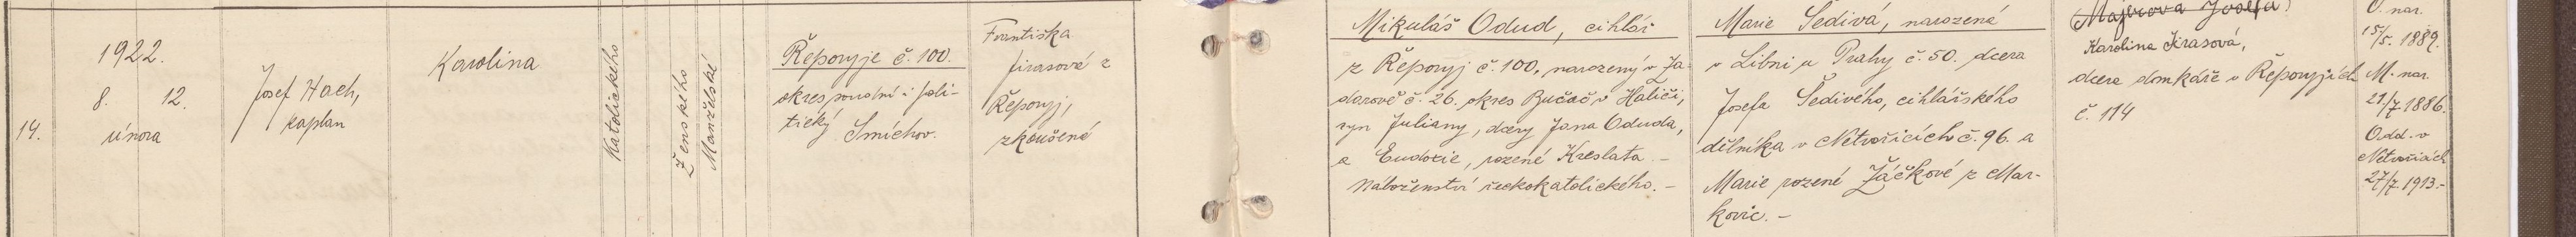 1922.
8. 12.
února
14.
Josef Hach,
kaplan
Karolina
Katolického
Ženského
Manželské
Řeporyje č. 100.
okres soudní i poli-
tický Smíchov.
Františka
Jirasové z
Řeporyj,
zkoušené
Mikuláš Odud, cihlář
z Řeporyj č. 100, narozený v Za-
darově č. 26. okres Bučač v Haliči,
syn Juliany, dcery Jana Oduda,
a Eudoxie, rozené Kreslata. -
Náboženství řeckokatolického. -
Marie Šedivá, narozená
v Libni u Prahy č. 50. dcera
Josefa Šedivého, cihlářského
dělníka v Netvořicích č. 96. a
Marie rozené Žáčkové z Mar-
kovic. -
(Majerova Josefa)
Karolina Jirasová,
dcera domkáře v Řeporyjích
č. 114
O. nar.
15/5. 1889.
M. nar.
21/7. 1886.
Odd. v
Netvořicích
27/7 1913. -